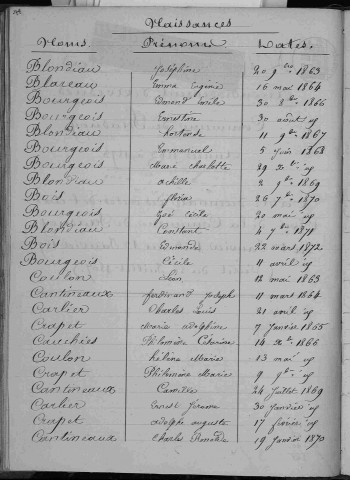 Naissances
Noms Prénoms Dates.
Blondiau Joséphine 20 9bre 1863
Blareau Emma Eugénie 16 mai 1864
Bourgeois Edmond Emile 30 8bre 1866
Bourgeois Ernestine 30 août
Blondiau Hortense 11 9bre 1867
Bourgeois Emmanuel 5 juin 1868
Bourgeois Marie Charlotte 29
Blondiau Achille 2 9bre 1869
Bois 26 7bre 1870
Bourgeois Zoé Cécile 20 mai
Blondiau Constant 4 7bre 1871
Bois Edmonde 22 mars 1872
Bourgeois Cécile 11 avril
Coulon Léon 12 mai 1863
Cantineaux ferdinand Joseph 11 mars 1864
Carlier Charles Louis 21 avril
Crapet Marie Adolphine 7 Janvier 1865
Cauchies Philomène Catherine 14 1866
Coulon hélène Marie 13 mai
Crapet Philomène Marie 9
Cantineaux Camille 24 Juillet 1869
Carlier Ernest Jérome 30 Janvier
Crapet adolphe auguste 17 février
Cantineaux Charles 19 Janvier 1870